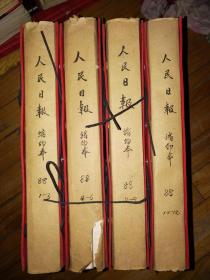 人民日報
缩印本
88
1-3
人民日報
缩印本
88
4-6
人民日報
缩印本
88
人民日報
缩印本
88
10-12